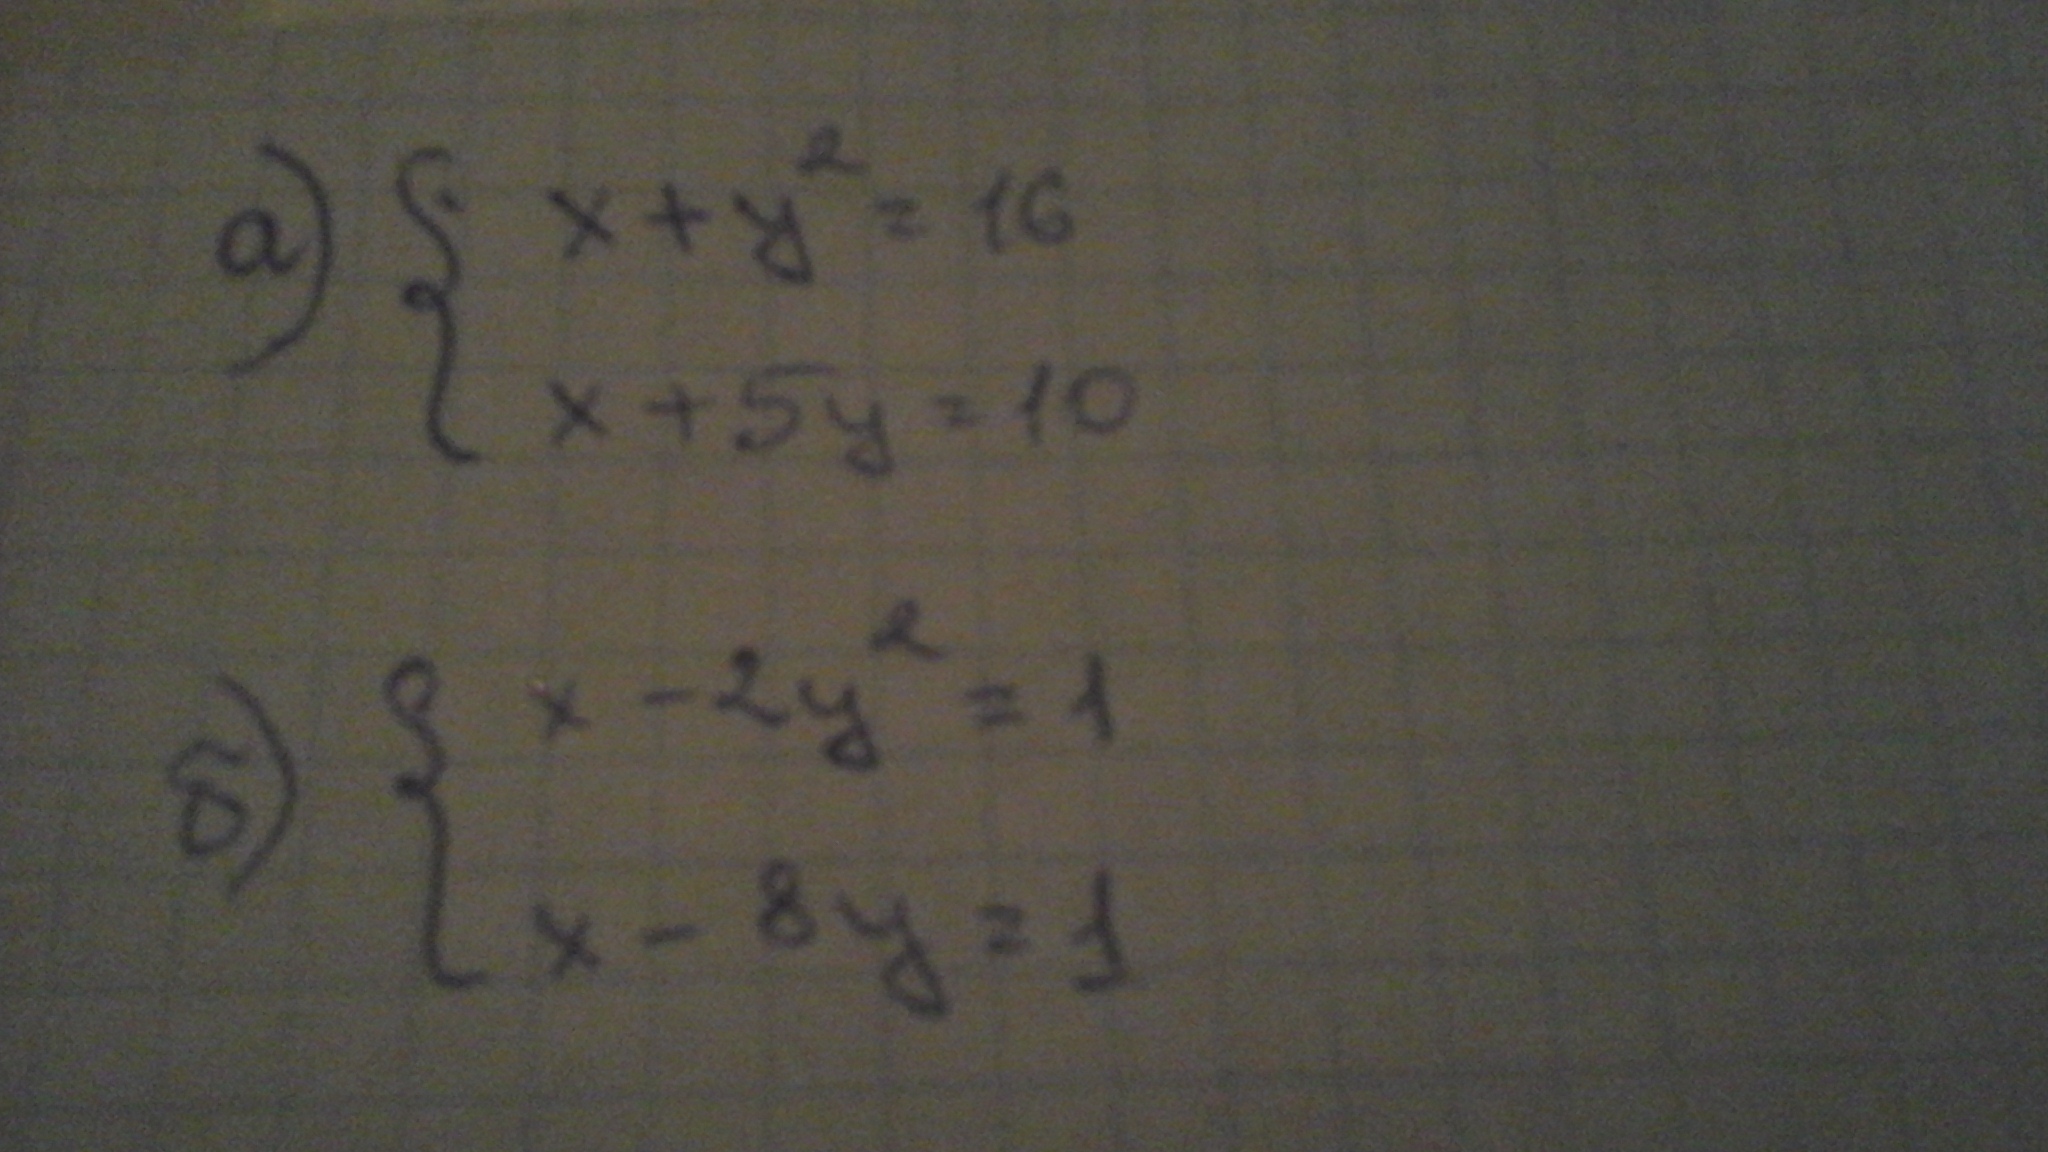 а) { x + y² = 16
x + 5y = 10
б) { x - 2y² = 1
x - 8y = 1